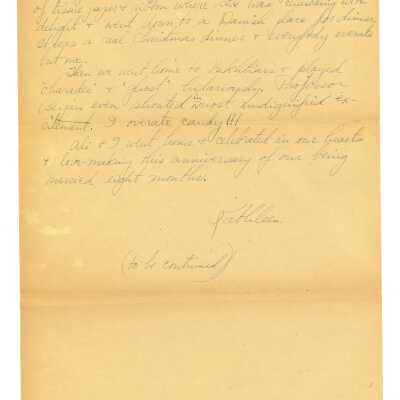 of tissue paper & ribbon where she was
delight & went down to a Danish place for dinner
a real Christmas dinner & everybody overate
but me.
Then we went home to & played
charades & "ghost" hilariously. Professor
even shouted "most undignified" ex-
citement. I overate candy!!!
Ali & I went home & celebrated in our
& love-making this anniversary of our being
married eight months.
Kathleen
(to be continued)